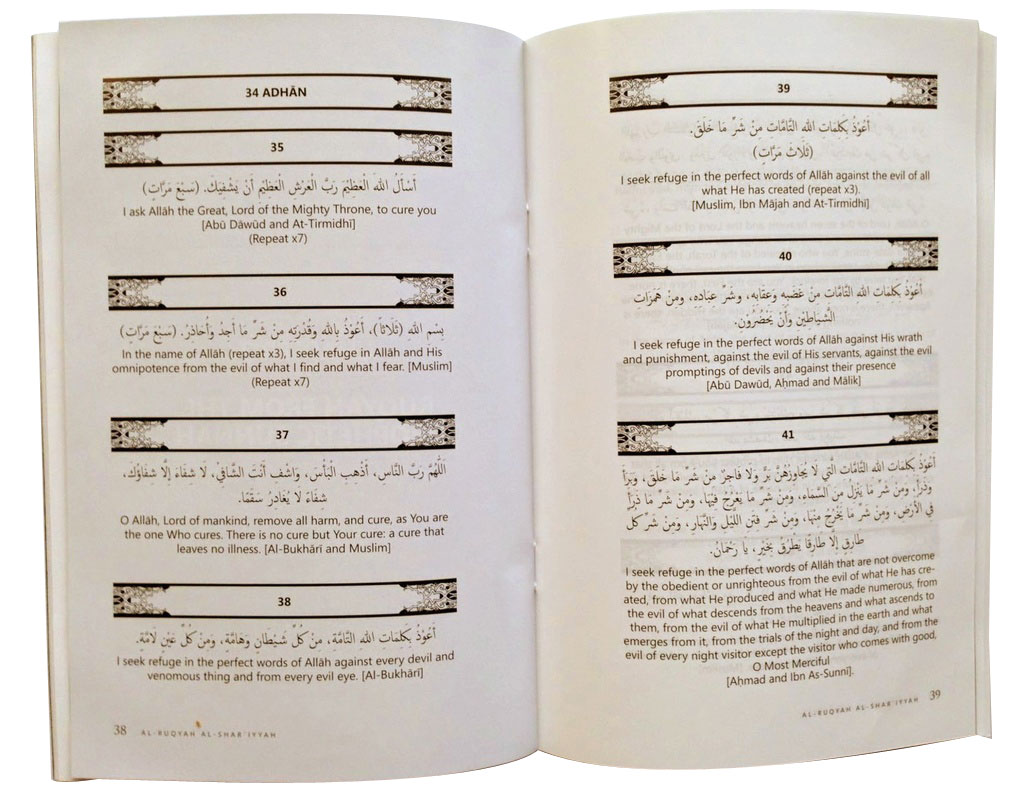 34 ADHĀN
35
أَسْأَلُ اللهَ الْعَظِيْمَ رَبَّ الْعَرْشِ الْعَظِيْمِ أَنْ يَشْفِيَكَ. (سَبْعَ مَرَّاتٍ)
I ask Allāh the Great, Lord of the Mighty Throne, to cure you
[Abū Dāwūd and At-Tirmidhī]
(Repeat x7)
36
بِسْمِ اللهِ (ثَلَاثاً)، أَعُوْذُ بِاللهِ وَقُدْرَتِهِ مِنْ شَرِّ مَا أَجِدُ وَأُحَاذِرُ. (سَبْعَ مَرَّاتٍ)
In the name of Allāh (repeat x3), I seek refuge in Allāh and His
omnipotence from the evil of what I find and what I fear. [Muslim]
(Repeat x7)
37
اَللّٰهُمَّ رَبَّ النَّاسِ، أَذْهِبِ الْبَأْسَ، وَاشْفِ أَنْتَ الشَّافِيْ، لَا شِفَاءَ إِلَّا شِفَاؤُكَ،
شِفَاءً لَا يُغَادِرُ سَقَمًا.
O Allāh, Lord of mankind, remove all harm, and cure, as You are
the one Who cures. There is no cure but Your cure: a cure that
leaves no illness. [Al-Bukhārī and Muslim]
38
أَعُوْذُ بِكَلِمَاتِ اللهِ التَّامَّةِ، مِنْ كُلِّ شَيْطَانٍ وَهَامَّةٍ، وَمِنْ كُلِّ عَيْنٍ لَامَّةٍ.
I seek refuge in the perfect words of Allāh against every devil and
venomous thing and from every evil eye. [Al-Bukhārī]
38 AL-RUQYAH AL-SHARʿIYYAH
39
أَعُوْذُ بِكَلِمَاتِ اللهِ التَّامَّاتِ مِنْ شَرِّ مَا خَلَقَ.
(ثَلَاثَ مَرَّاتٍ)
I seek refuge in the perfect words of Allāh against the evil of all
what He has created (repeat x3).
[Muslim, Ibn Mājah and At-Tirmidhī]
40
أَعُوْذُ بِكَلِمَاتِ اللهِ التَّامَّاتِ مِنْ غَضَبِهِ وَعِقَابِهِ، وَشَرِّ عِبَادِهِ، وَمِنْ هَمَزَاتِ
الشَّيَاطِيْنِ وَأَنْ يَحْضُرُوْنِ.
I seek refuge in the perfect words of Allāh against His wrath
and punishment, against the evil of His servants, against the evil
promptings of devils and against their presence
[Abū Dawūd, Aḥmad and Mālik]
41
أَعُوْذُ بِكَلِمَاتِ اللهِ التَّامَّاتِ الَّتِي لَا يُجَاوِزُهُنَّ بَرٌّ وَلَا فَاجِرٌ مِنْ شَرِّ مَا خَلَقَ، وَبَرَأَ
وَذَرَأَ، وَمِنْ شَرِّ مَا يَنْزِلُ مِنَ السَّمَاءِ، وَمِنْ شَرِّ مَا يَعْرُجُ فِيْهَا، وَمِنْ شَرِّ مَا ذَرَأَ
فِي الْأَرْضِ، وَمِنْ شَرِّ مَا يَخْرُجُ مِنْهَا، وَمِنْ شَرِّ فِتَنِ اللَّيْلِ وَالنَّهَارِ، وَمِنْ شَرِّ كُلِّ
طَارِقٍ إِلَّا طَارِقًا يَطْرُقُ بِخَيْرٍ، يَا رَحْمَانُ.
I seek refuge in the perfect words of Allāh that are not overcome
by the obedient or unrighteous from the evil of what He has cre-
ated, from what He produced and what He made numerous, from
the evil of what descends from the heavens and what ascends to
them, from the evil of what He multiplied in the earth and what
emerges from it, from the trials of the night and day, and from the
evil of every night visitor except the visitor who comes with good,
O Most Merciful
[Aḥmad and Ibn As-Sunnī].
AL-RUQYAH AL-SHARʿIYYAH 39